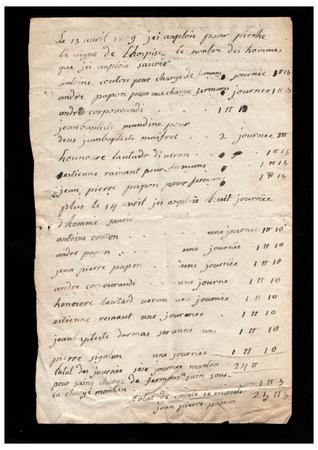 Le 13 avril 1809 jei anploie pour pioche
la vigne de l'hospise le nonbre des hommes
que jei anploie savoir
antoine couton pour charge de journée 1 ₶ 15
andre papon pour charge journee 1 ₶ 15
andre corpourandi 1 ₶ 10
jean baptiste pour
deux jeanbaptiste 2 journée
honnoure lautadr 1 ₶ 15
estienne rainaut pour 1 ₶ 15
jean pierre papon pour 1 ₶ 15
plus le 14 avril jei anploie huit journée
d'homme savoir
antoine couton une journee 1 ₶ 10
andre papon une journée 1 ₶ 10
jean pierre papon une journée 1 ₶ 10
andre une journée 1 ₶ 10
honorore lautard une journee 1 ₶ 10
estienne reinaut une journee 1 ₶ 10
jeanbaptiste une 1 ₶ 10
pierre sigalon une journée 1 ₶ 10
total des journée sese journée montan 24 ₶
pour saing charge de sain sous
la charge montan 1 ₶ 5
total de conte se monte 25 ₶ 5
jean pierre papon